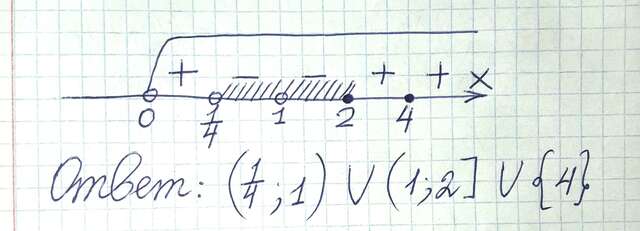 + − − + + x
0 1/4 1 2 4
Ответ: (1/4; 1) ∪ (1; 2] ∪ {4}